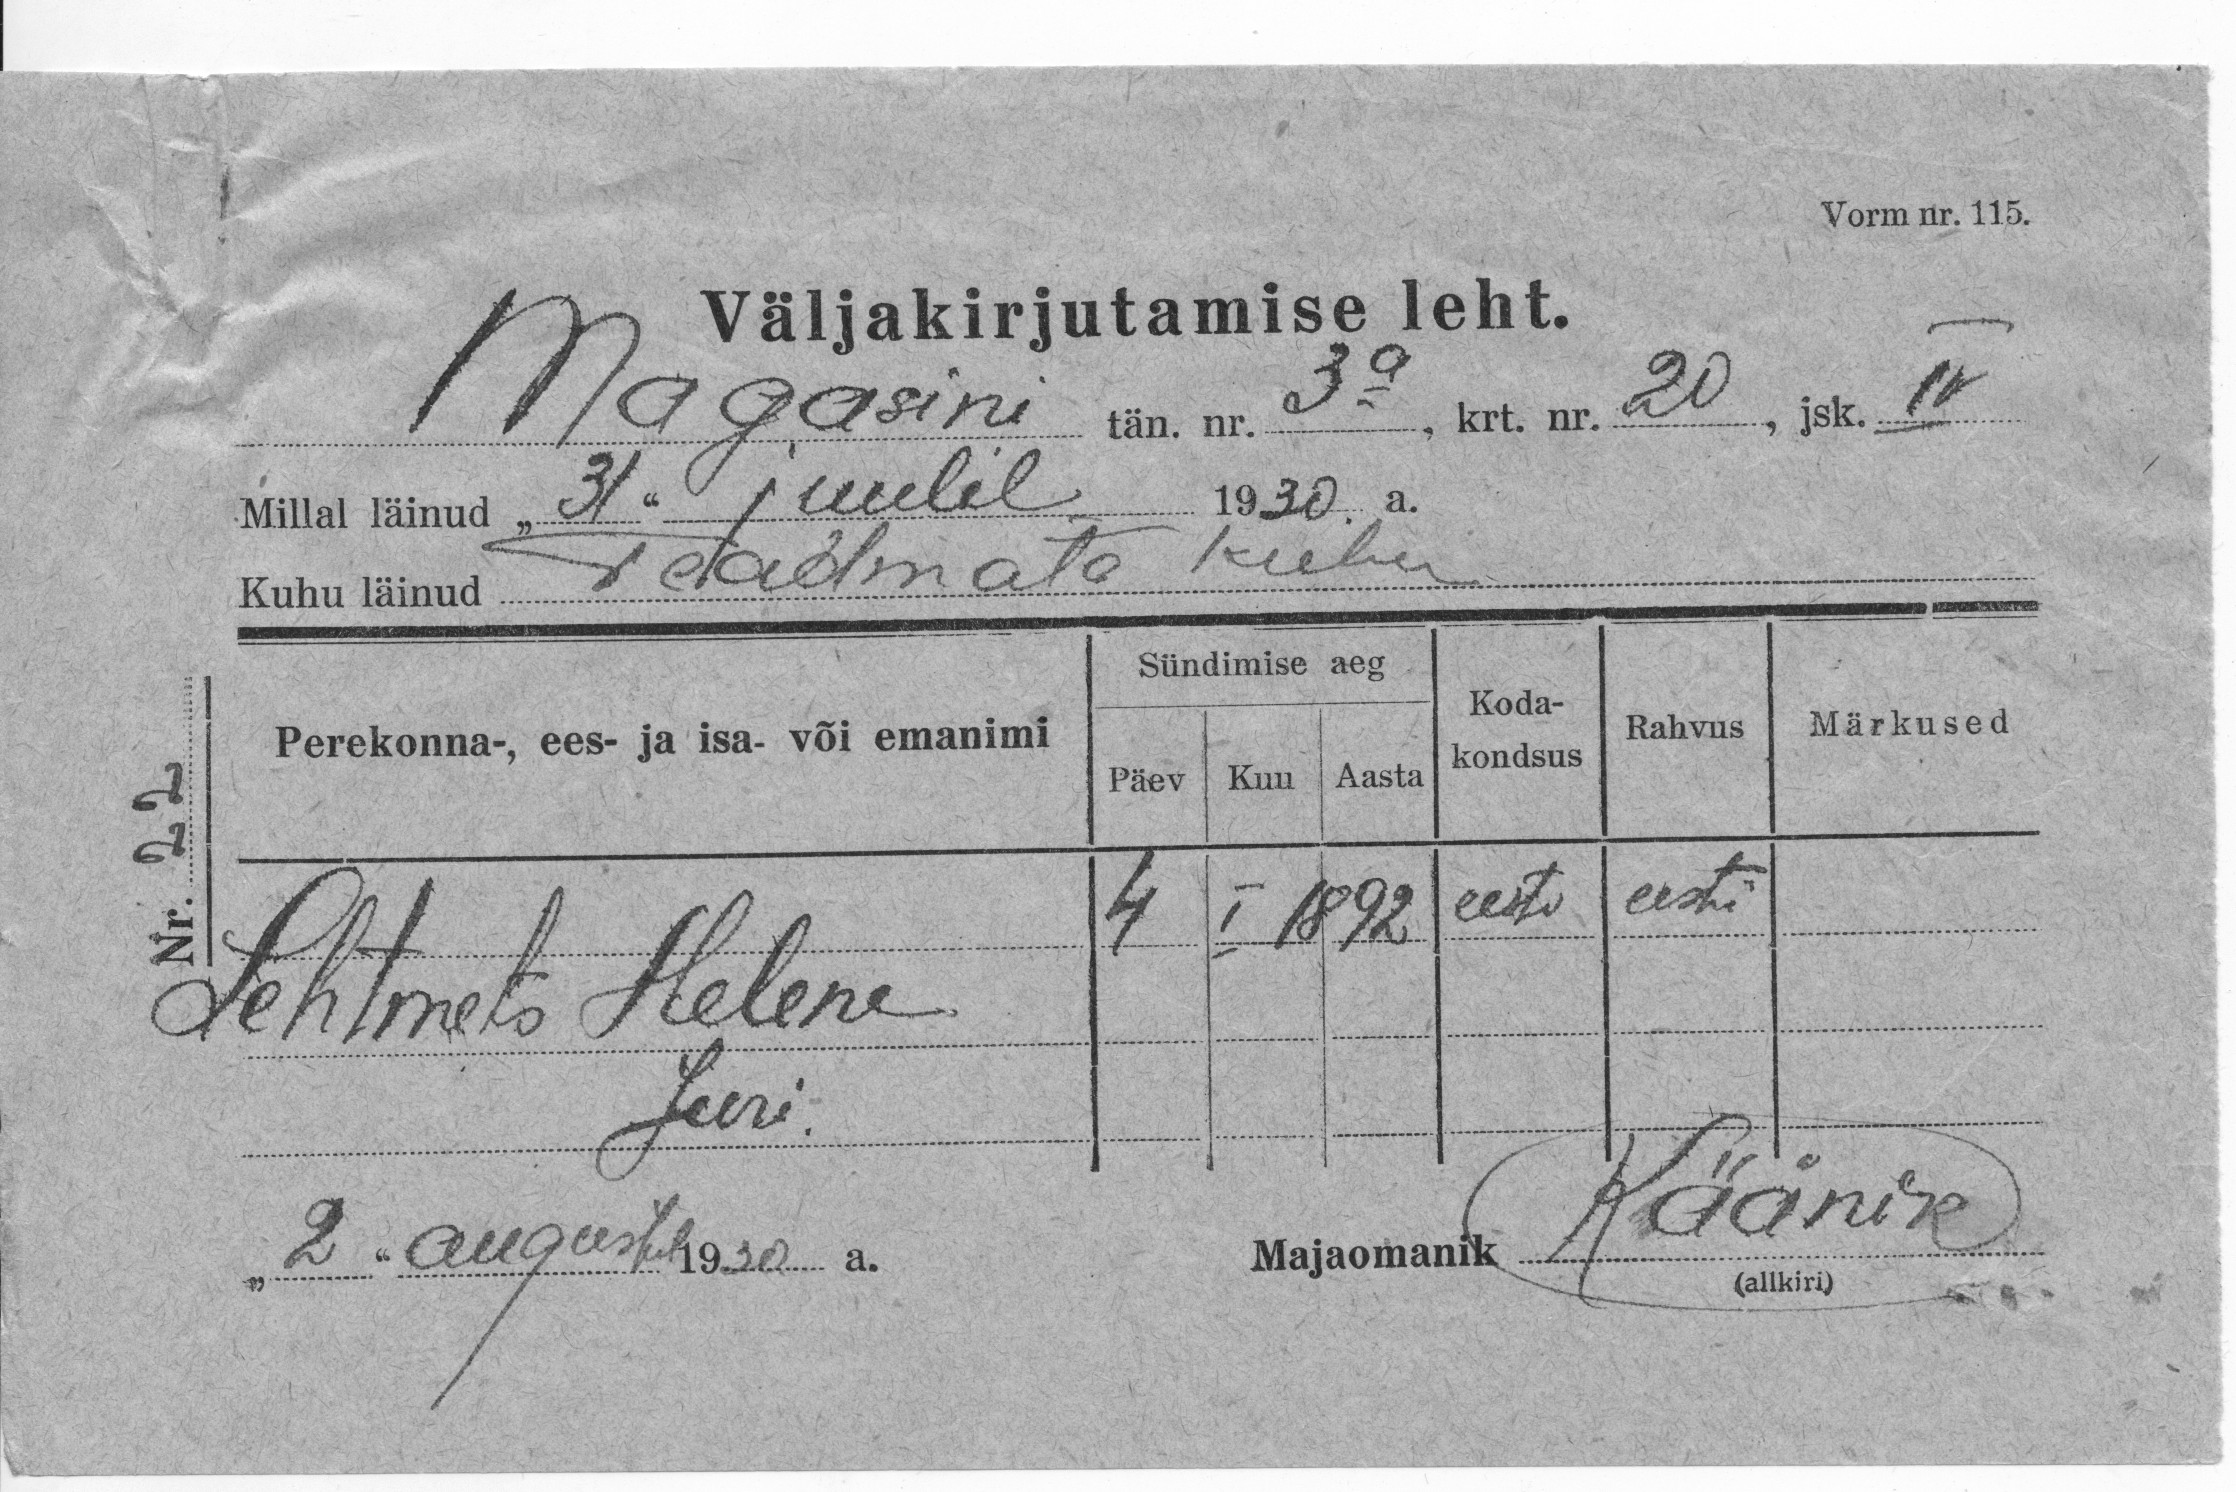 Vorm nr. 115.
Väljakirjutamise leht.
Magasini tän. nr. 3a, krt. nr. 20, jsk. IV
Millal läinud „31“ juulil 1930. a.
Kuhu läinud Teadmata kuhu
Nr. 22
Perekonna-, ees- ja isa- või emanimi
Sündimise aeg
Päev Kuu Aasta
Koda-
kondsus
Rahvus
Märkused
4 I 1892 eesti eesti
Lehtmets Helene
Juri.
„2“ augustil 1930 a.
Majaomanik Käänik
(allkiri)